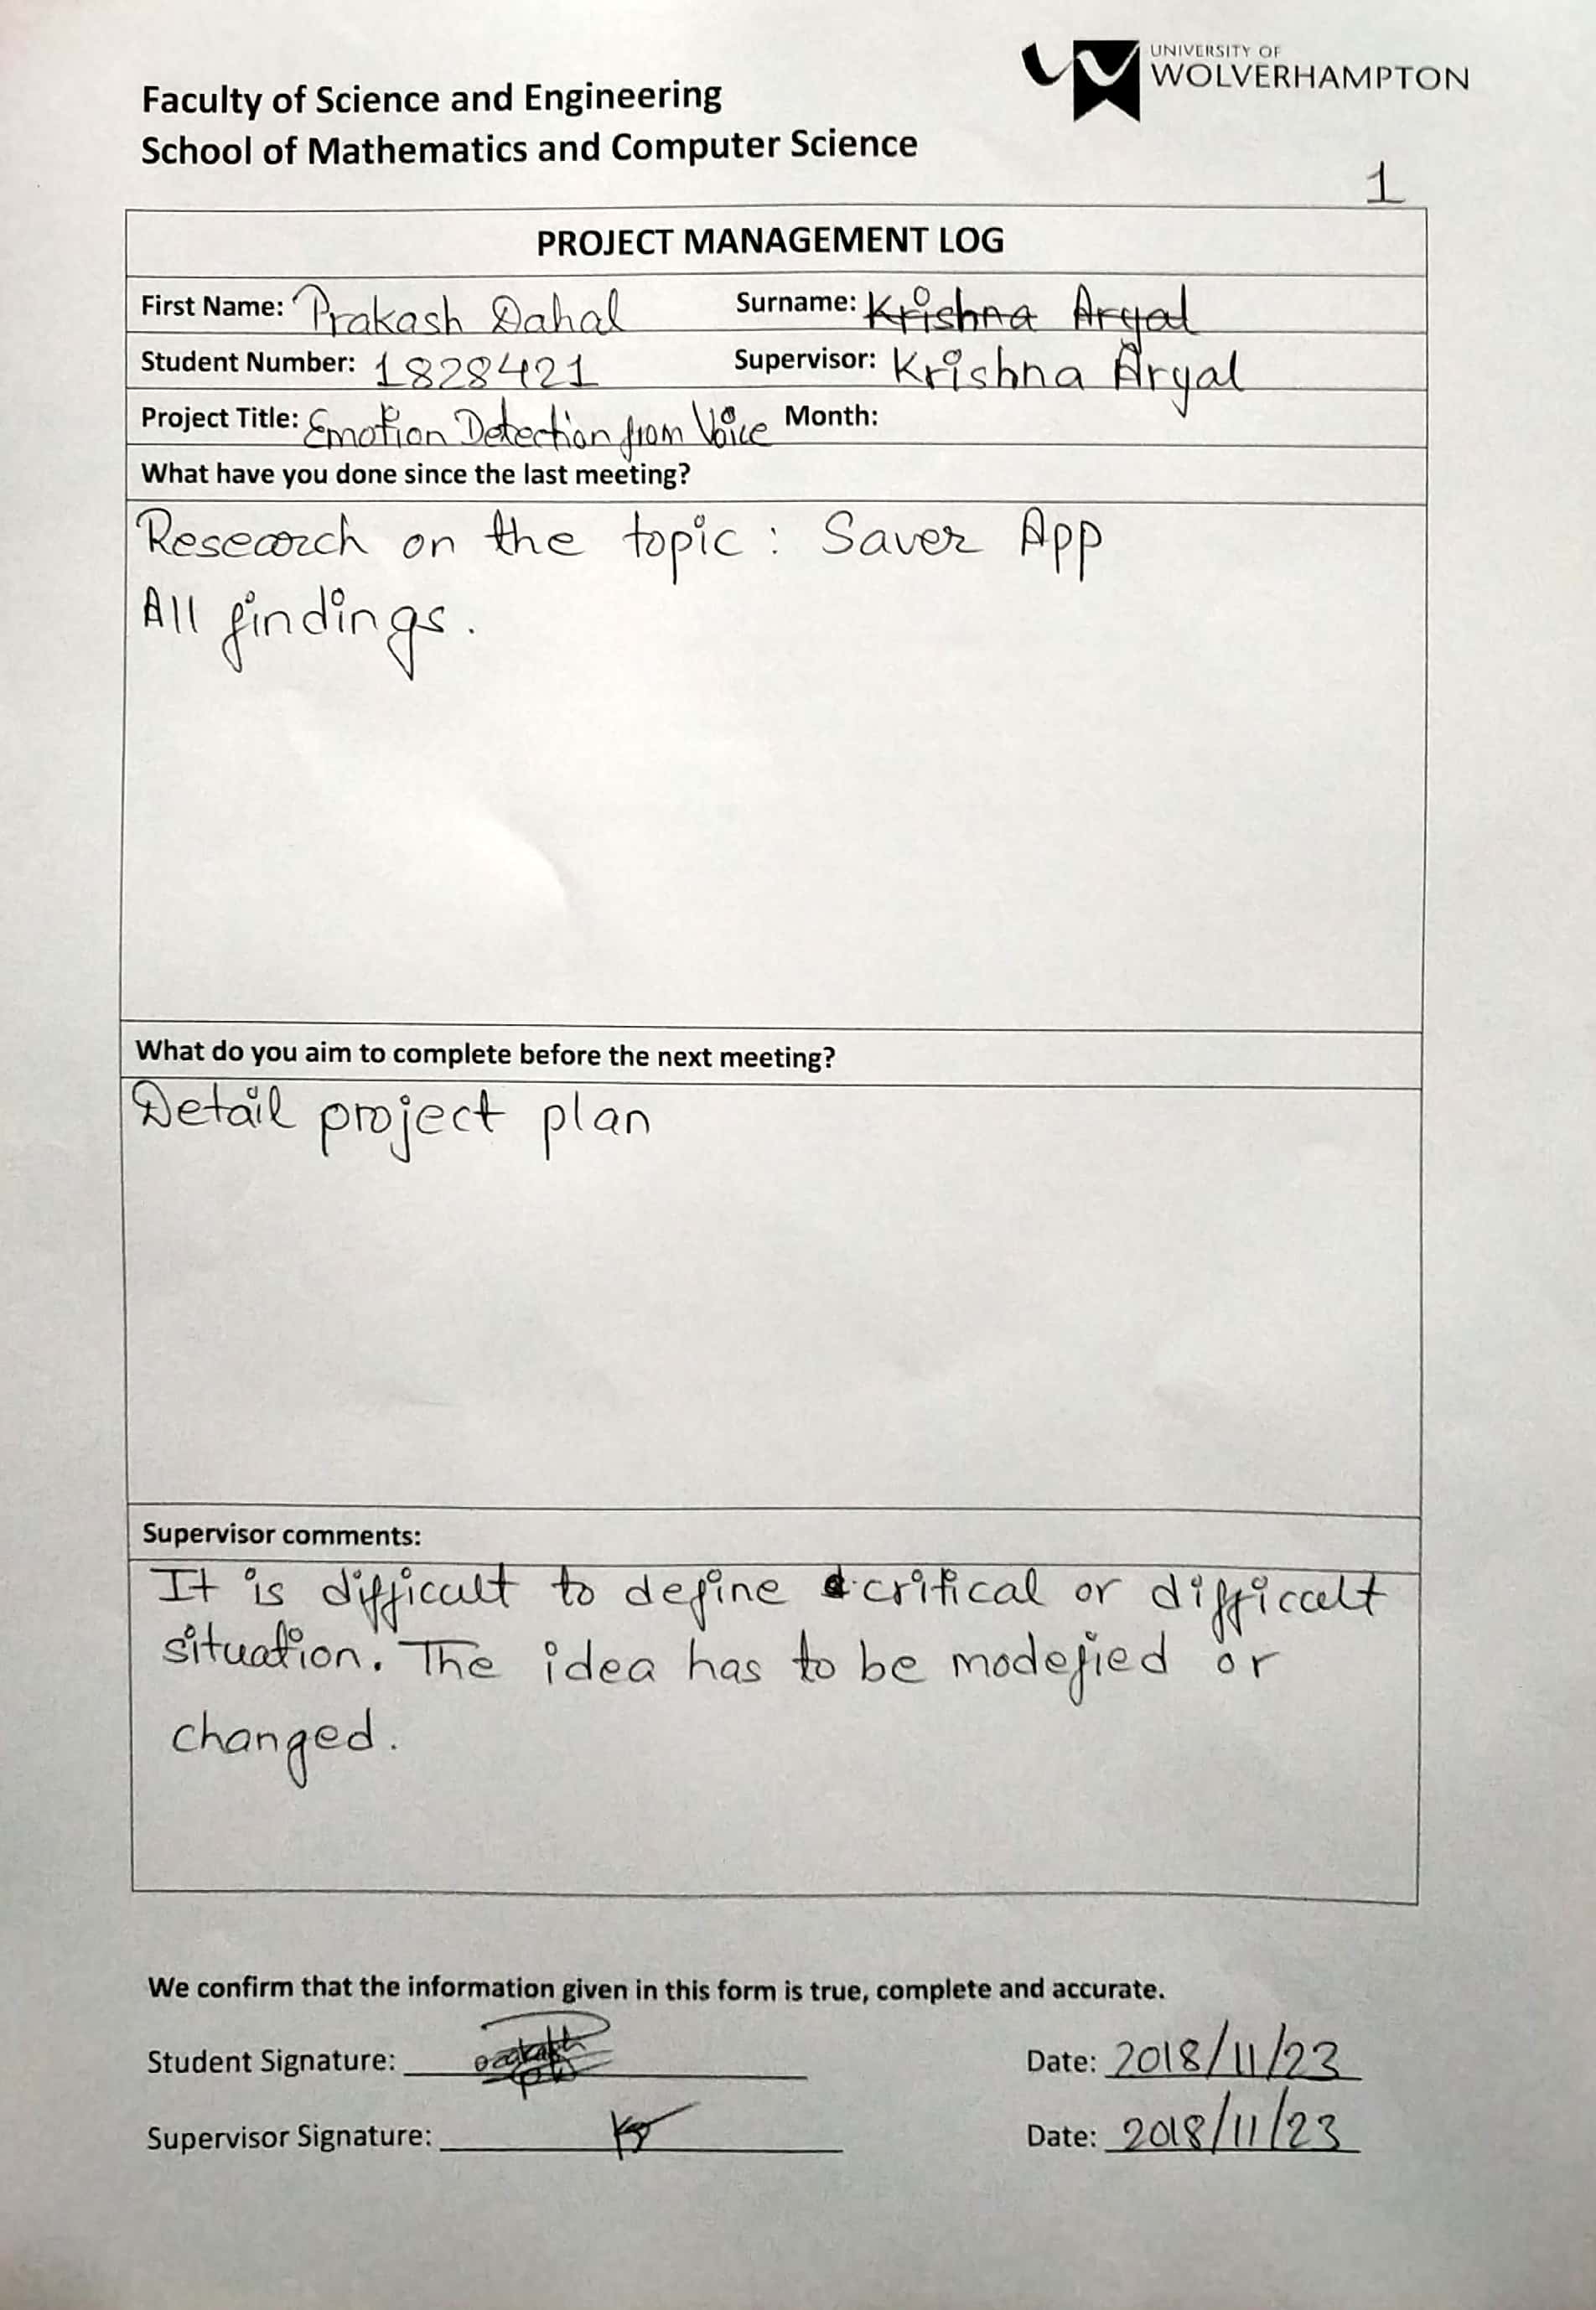 UNIVERSITY OF
WOLVERHAMPTON
Faculty of Science and Engineering
School of Mathematics and Computer Science
1
PROJECT MANAGEMENT LOG
First Name: Prakash Dahal Surname: Krishna Aryal
Student Number: 1828421 Supervisor: Krishna Aryal
Project Title: Emotion Detection from Voice Month:
What have you done since the last meeting?
Research on the topic : Saver App
All findings.
What do you aim to complete before the next meeting?
Detail project plan
Supervisor comments:
It is difficult to define critical or difficult
situation. The idea has to be modefied or
changed.
We confirm that the information given in this form is true, complete and accurate.
Student Signature: Date: 2018/11/23
Supervisor Signature: Date: 2018/11/23